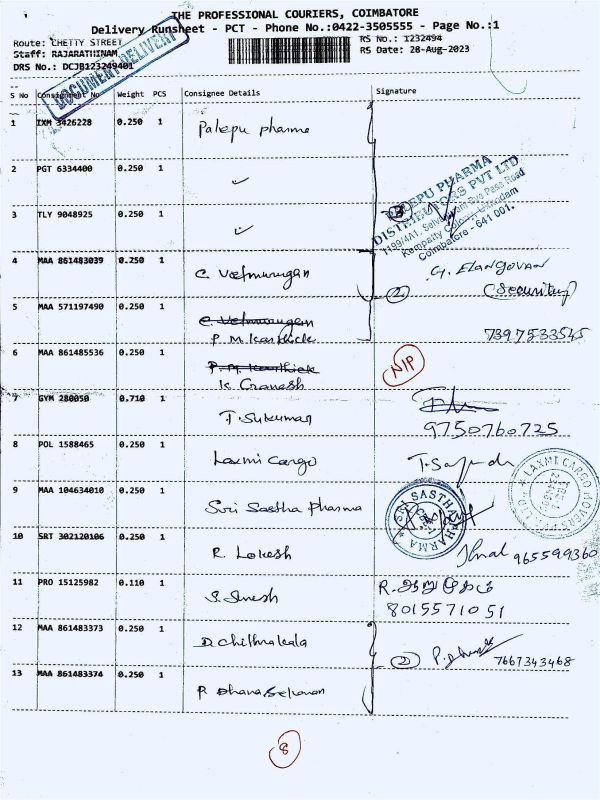 THE PROFESSIONAL COURIERS, COIMBATORE
Delivery Runsheet - PCT - Phone No.:0422-3505555 - Page No.:1
Route: CHETTY STREET
RS No.: 1232494
Staff: RAJARATHINAM
RS Date: 28-Aug-2023
DRS No.: DCJB123249401
DOCUMENT DELIVERY
S No Consignment No Weight PCS Consignee Details Signature
1 IXM 3426228 0.250 1 Palepu pharma
2 PGT 6334400 0.250 1 ✓
3 TLY 9048925 0.250 1 ✓
3
PALEPU PHARMA
DISTRIBUTORS PVT LTD
Coimbatore - 641 001.
4 MAA 861483039 0.250 1 C. Velmurugan
2 G. ELANGOVAN
(Security)
5 MAA 571197490 0.250 1 C. Velmurugan
P. M. Karthick
7397533545
6 MAA 861485536 0.250 1 P. M. Karthick
K. Granesh
N/P
7 GYM 280050 0.710 1 T. Sukumar
9750760725
8 POL 1588465 0.250 1 Laxmi Cargo
LAXMI CARGO MOVERS
9 MAA 104634010 0.250 1 Sri Sastha Pharma
SRI SASTHA PHARMA
10 SRT 302120106 0.250 1 R. Lokesh
965599360
11 PRO 15125982 0.110 1 S. Sinesh
R. ஆறுமுகம்
8015571051
12 MAA 861483373 0.250 1 D. Chithrakala
2 7667343468
13 MAA 861483374 0.250 1 P. Dhanasekaran
8